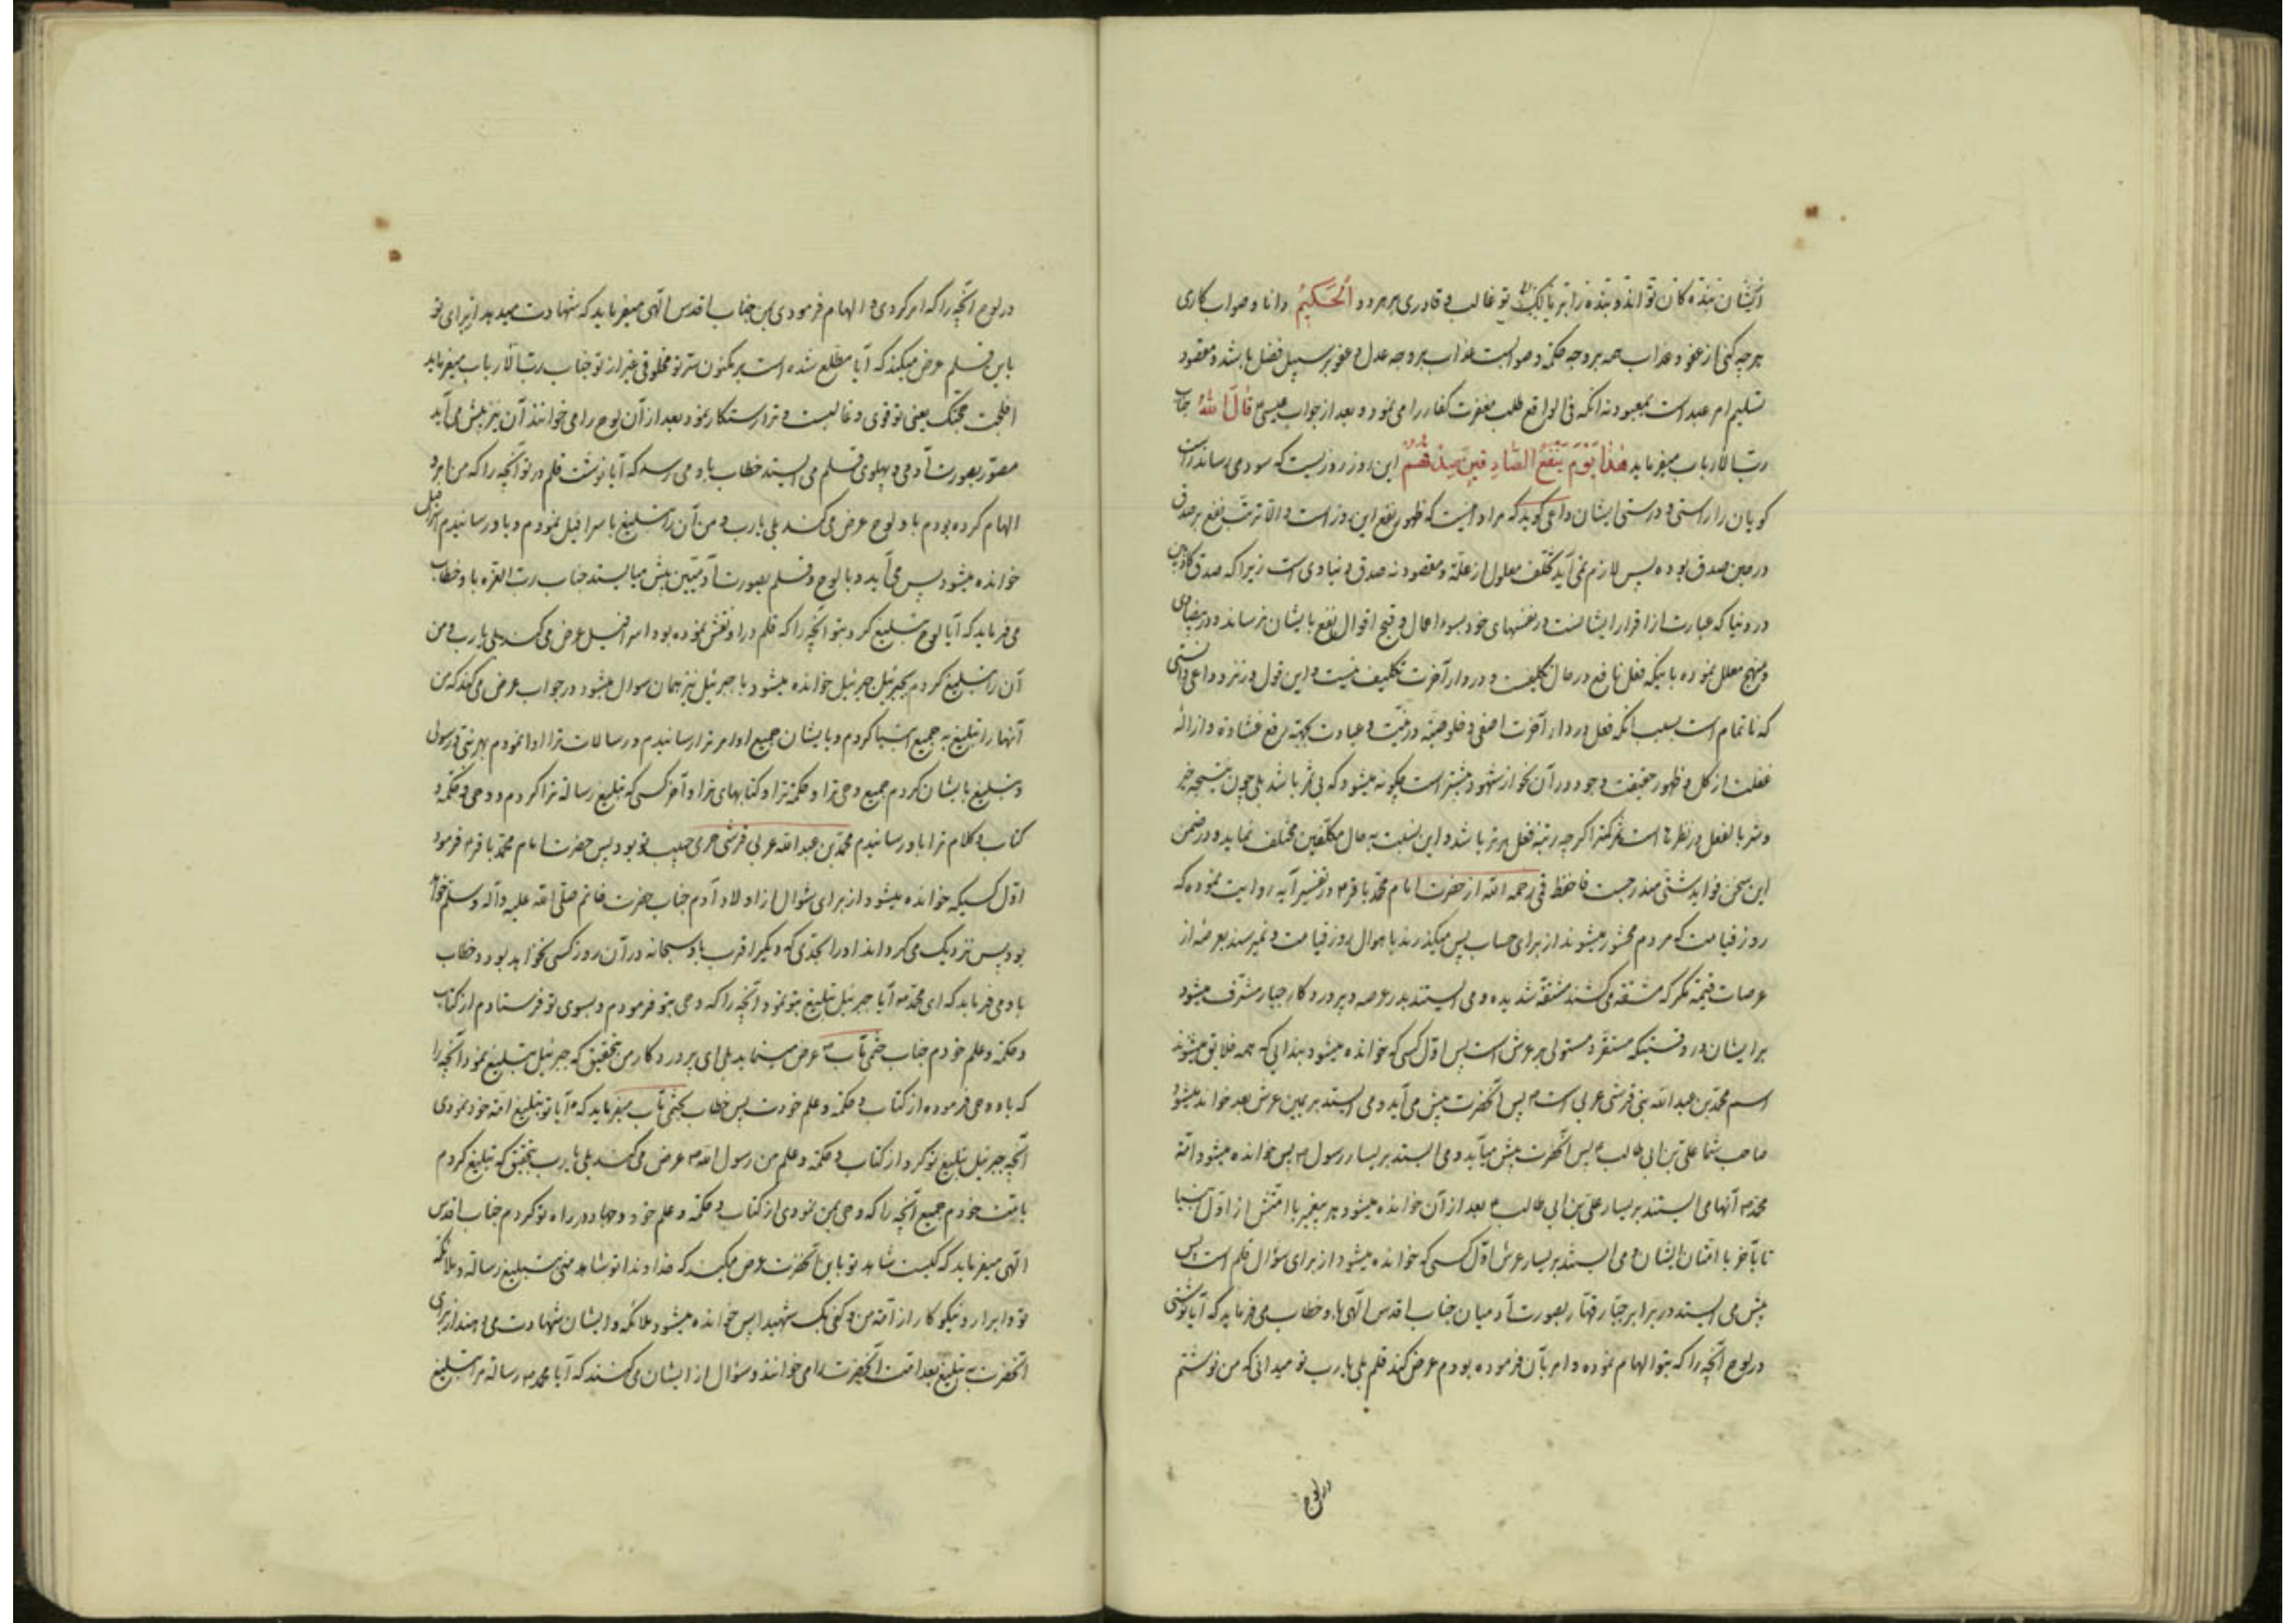 ایشان بنده کان تواند و بنده را بر مالک تو غالب و قادری بر همه و الْحَكِيمُ دانا و صواب کاری
هر چه کنی از عفو و عذاب همه بر وجه حکمة و صوابست عذاب بر وجه عدل و عفو بر سبیل فضل باشد و مقصود
تسلیم امر عبد است بمعبود نه انکه فی الواقع طلب مغفرت کفار را می نمود و بعد از جواب عیسی قَالَ اللهُ جناب
رب الارباب میفرماید هٰذَا يَوْمُ يَنْفَعُ الصَّادِقِينَ صِدْقُهُمْ این روز روزیست که سود می رساند راست
کویان را راستی و درستی ایشان داعی کوید که مراد اینست که ظهور نفع این روز است و الا ترتب نفع بر صدق
در حین صدق بوده پس لازم نمی آید تخلف معلول از علة و مقصود نه صدق دنیاوی است زیرا که صدق کاذبین
در دنیا که عبارت از اقرار ایشانست در نفسهای خود بسوء اعمال و قبح اقوال نفع بایشان نرساند و در
منهج معلل نموده باینکه فعل نافع در حال تکلیف و در دار آخرت تکلیف نیست و این قول در نزد داعی
که ناتمام است بسبب انکه فعل در دار آخرت اصفی و خلوصیة در نیت و عبادت بجهة رفع غشاوه و ازالهٔ
غفلت از کل و ظهور حقیقت وجود در آن نحو از شهود بیشتر است چکونه میشود که بی ثمر باشد بلی چون نتیجه خیر
و شر بالفعل در نظرها است ثمر کمتر اکر چه رتبهٔ فعل برتر باشد و این نسبت به حال مکلفین مختلف نماید و در ضمن
این سخن فواید شتی مندرجست فاحفظ قمی رحمه الله از حضرت امام محمد باقر در تفسیر آیه روایت نموده که
روز قیامت که مردم محشور میشوند از برای حساب پس میکذرند باهوال روز قیامت و نمیرسند بعرصه از
عرصات قیمة مکر که مشقة می کشند مشقة شدیده و می ایستند بدر عرصه و پروردکار جبار مشرف میشود
بر ایشان در وقتیکه مستقر و مستولی بر عرش است پس اول کسی که خوانده میشود بندائی که همه خلایق میشنوند
اسم محمد بن عبد الله نبی قرشی عربی است پس آنحضرت پیش می آید و می ایستد بر یمین عرش بعد خوانده میشود
صاحب شما علی بن ابی طالب پس آنحضرت پیش میآید و می ایستد بر یسار رسول پس خوانده میشود امة
محمد آنها می ایستند بر یسار علی بن ابی طالب بعد از آن خوانده میشود هر پیغمبر با امتش از اول انبیا
تا بآخر با امتان ایشان و می ایستند بر یسار عرش اول کسی که خوانده میشود از برای سؤال قلم است پس
پیش می ایستد در برابر جبار قهار بصورت آدمیان جناب اقدس الهی باو خطاب می فرماید که آیا نوشتی
در لوح آنچه را که بتو الهام نموده و امر بآن فرموده بودم عرض کند قلم بلی یا رب تو میدانی که من نوشتم
در لوح
در لوح آنچه را که امر کردی و الهام فرمودی بمن جناب اقدس الهی میفرماید که شهادت میدهد از برای تو
باین قلم عرض میکند که آیا مطلع شده است بر مکنون سر تو مخلوقی غیر از تو جناب رب الارباب میفرماید
افلجت حجتک یعنی تو قوی و غالبست و ترا رستکار نمود بعد از آن لوح را می خوانند آن نیز پیش می آید
مصور بصورت آدمی و پهلوی قلم می ایستد خطاب باو می رسد که آیا نوشت قلم در تو آنچه را که من باو
الهام کرده بودم باو لوح عرض می کند بلی یا رب و من آن را تبلیغ باسرافیل نمودم و باو رسانیدم اسرافیل
خوانده میشود پس می آید و با لوح و قلم بصورت آدمیین پیش میایستد جناب رب العزه باو خطاب
می فرماید که آیا لوح تبلیغ کرد بتو آنچه را که قلم در او نقش نموده بود اسرافیل عرض می کند بلی یا رب و من
آن را تبلیغ کردم بجبرئیل جبرئیل خوانده میشود با جبرئیل نیز همان سوال میشود در جواب عرض می کند که من
آنها را تبلیغ به جمیع انبیا کردم و بایشان جمیع اوامر ترا رسانیدم و رسالات ترا ادا نمودم بهر نبی و رسولی
و تبلیغ بایشان کردم جمیع وحی ترا و حکمة ترا و کتابهای ترا و آخر کسی که تبلیغ رسالة ترا کردم و وحی و حکمة و
کتاب و کلام ترا باو رسانیدم محمد بن عبد الله عربی قرشی حرمی حبیب تو بود پس حضرت امام محمد باقر فرمود
اول کسیکه خوانده میشود از برای سئوال از اولاد آدم جناب حضرت خاتم صلی الله علیه وآله وسلم خواهد
بود پس نزدیک می کرداند او را بحدی که دیکر اقرب باو سبحانه در آن روز کسی نخواهد بود و خطاب
باو می فرماید که ای محمد آیا جبرئیل تبلیغ بتو نمود آنچه را که وحی بتو فرمودم و بسوی تو فرستادم از کتاب
و حکمة و علم خودم جناب ختمی مآب عرض مینماید بلی ای پروردکار من بتحقیق که جبرئیل تبلیغ نمود آنچه را
که باو وحی فرموده از کتاب و حکمة و علم خودت پس خطاب بختمی مآب میفرماید که آیا تو تبلیغ امة خود نمودی
آنچه جبرئیل تبلیغ تو کرد از کتاب و حکمة و علم من رسول الله عرض می کند بلی یا رب بتحقیق که تبلیغ کردم
بامت خودم جمیع آنچه را که وحی بمن نمودی از کتاب و حکمة و علم خود و جهاد در راه تو کردم جناب اقدس
الهی میفرماید که کیست شاهد تو باین آنحضرت عرض میکند که خداوندا تو شاهد منی بتبلیغ رسالة و ملائکه
تو و ابرار و نیکوکار از امة من و کفی بک شهیدا پس خوانده میشود ملائکه و ایشان شهادت می دهند از برای
آنحضرت به تبلیغ بعد امت آنحضرت را می خوانند و سؤال از ایشان می کنند که آیا محمد رسالة مرا تبلیغ